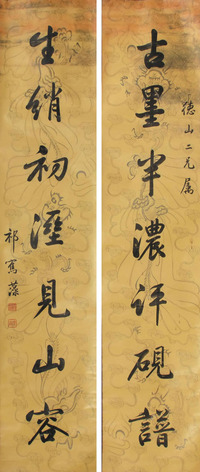 德山二兄属
古墨半濃評硯譜
生绡初溼見山容
祁寯藻